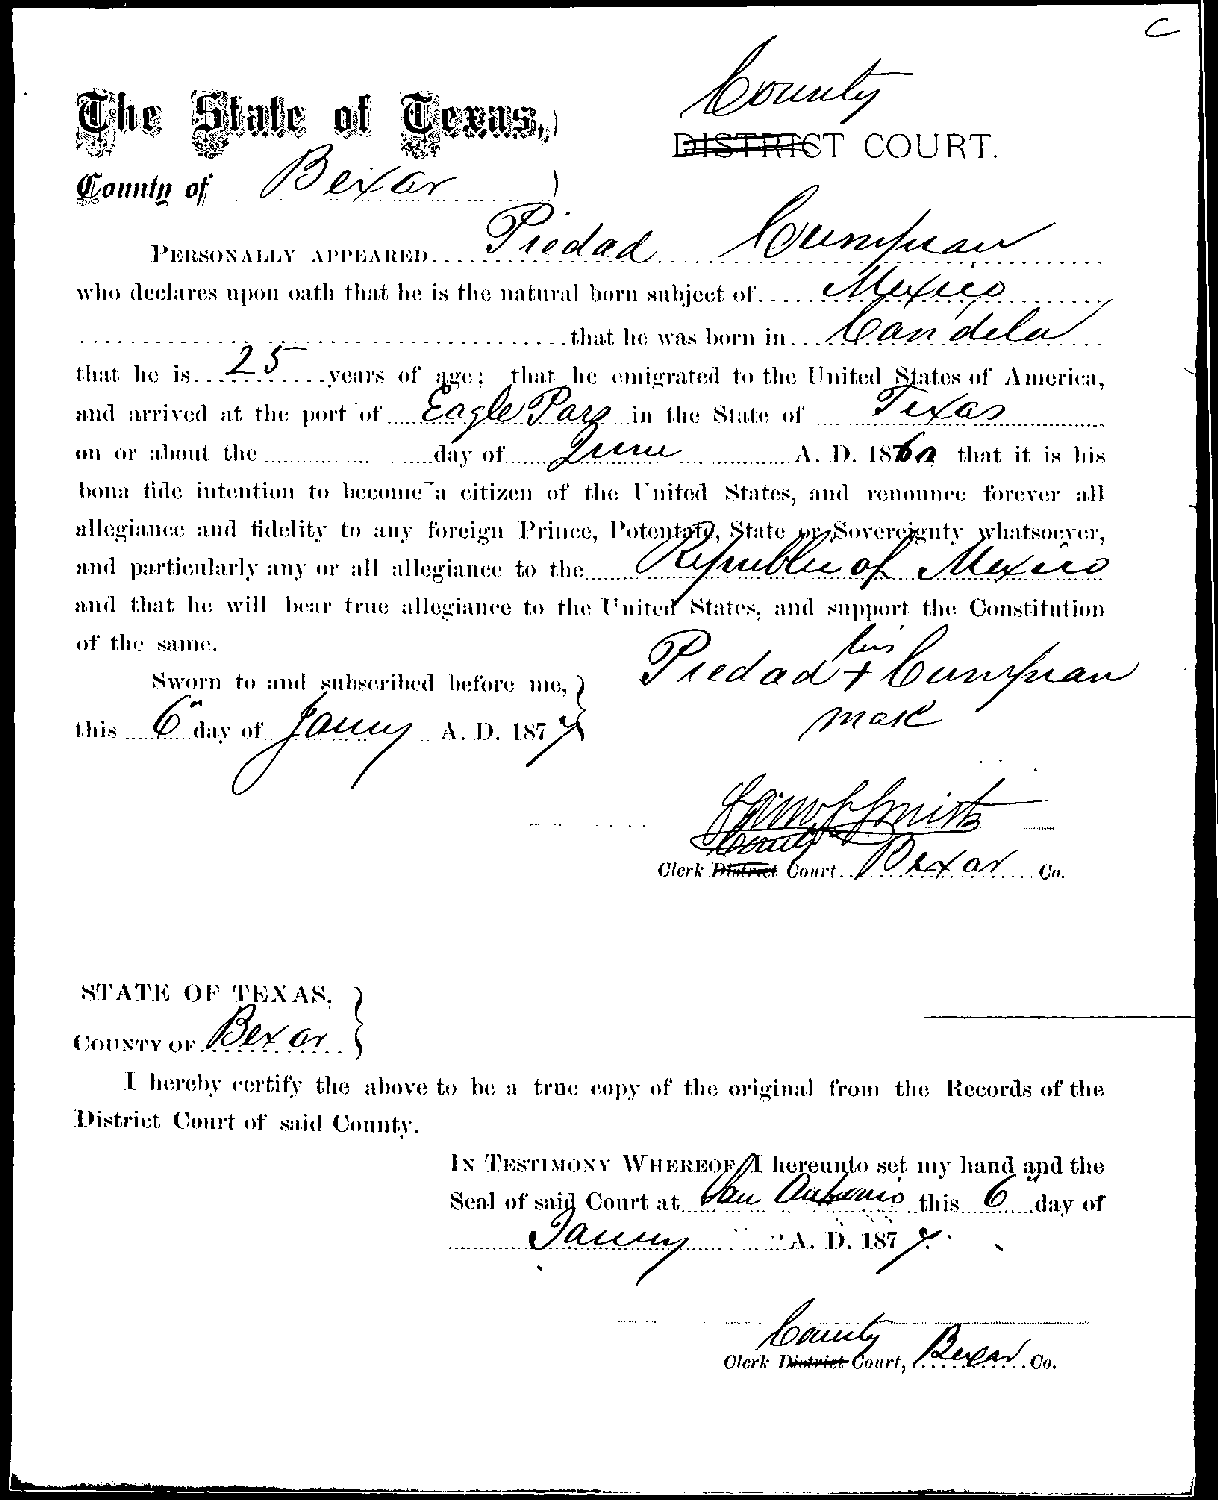 C
County
The State of Texas,
DISTRICT COURT.
County of Bexar
PERSONALLY APPEARED Piedad Cumpian
who declares upon oath that he is the natural born subject of Mexico
that he was born in Candela
that he is 25 years of age; that he emigrated to the United States of America,
and arrived at the port of Eagle Pass in the State of Texas
on or about the day of June A. D. 1860 that it is his
bona fide intention to become a citizen of the United States, and renounce forever all
allegiance and fidelity to any foreign Prince, Potentate, State or Sovereignty whatsoever,
and particularly any or all allegiance to the Republic of Mexico
and that he will bear true allegiance to the United States, and support the Constitution
of the same.
his
Piedad + Cumpian
mark
Sworn to and subscribed before me,
this 6" day of Jany A. D. 1877
Smith
County
Clerk District Court Bexar Co.
STATE OF TEXAS,
COUNTY OF Bexar
I hereby certify the above to be a true copy of the original from the Records of the
District Court of said County.
IN TESTIMONY WHEREOF, I hereunto set my hand and the
Seal of said Court at San Antonio this 6" day of
Jany A. D. 1877.
County
Clerk District Court, Bexar Co.